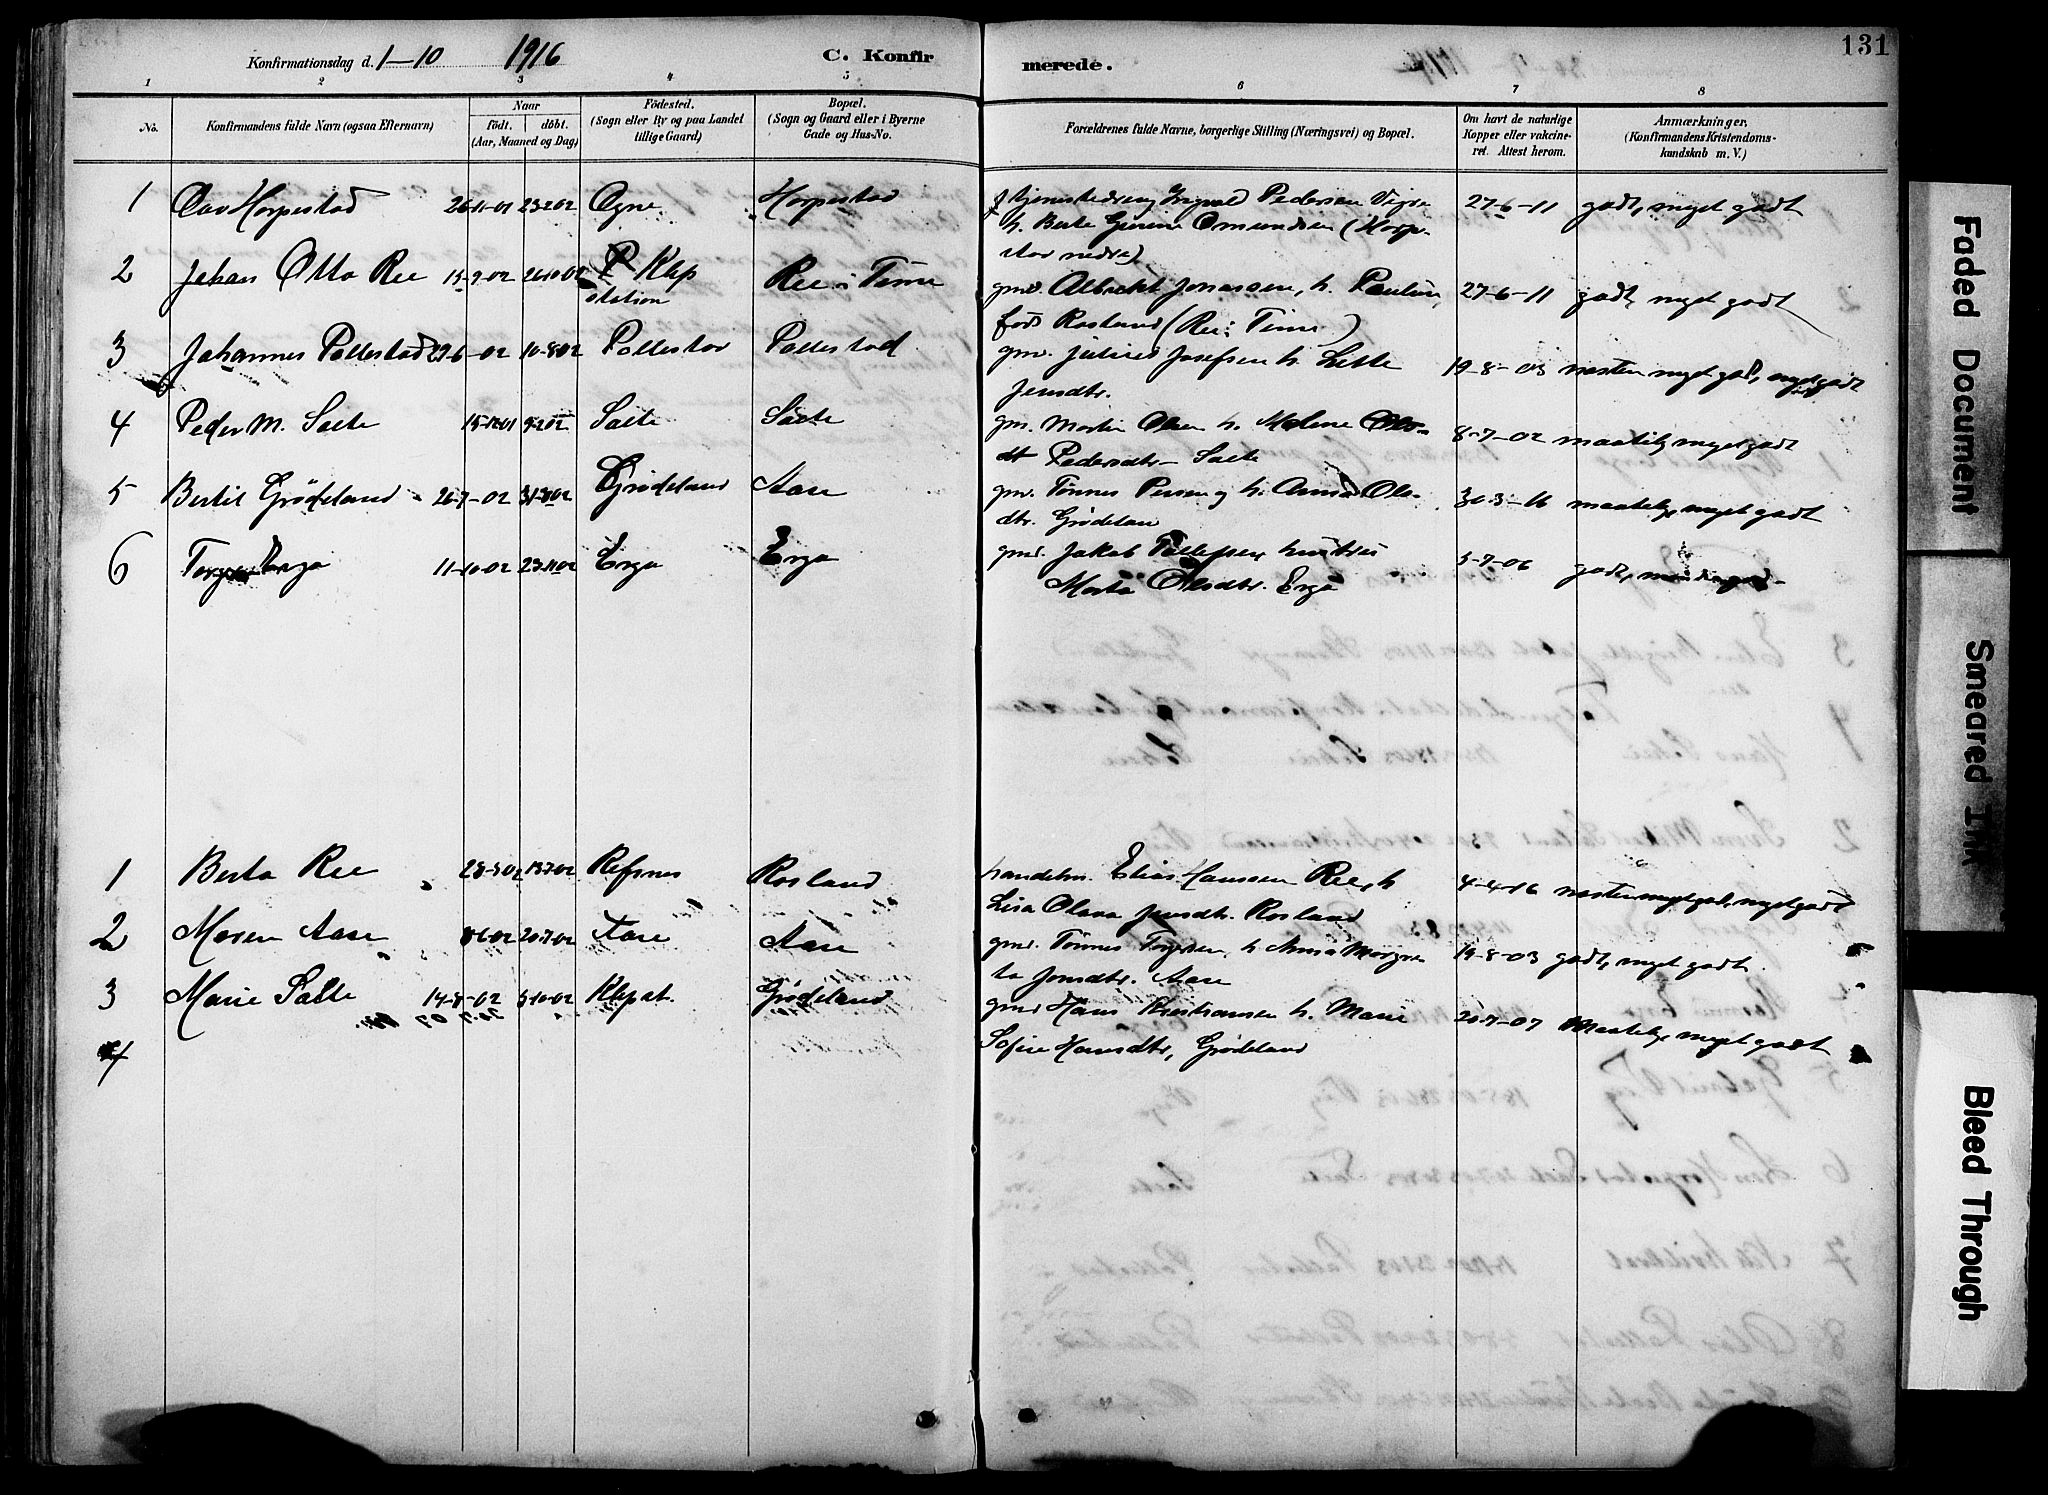 131
Konfirmationsdag d. 1-10 1916 C. Konfirmerede.
1 2 3 4 5 6 7 8
No. Konfirmandens fulde Navn (ogsaa Efternavn) Naar födt. döbt. (Aar, Maaned og Dag) Födested. (Sogn eller By og paa Landet tillige Gaard) Bopæl. (Sogn og Gaard eller i Byerne Gade og Hus-No. Forældrenes fulde Navne, borgerlige Stilling (Næringsvei) og Bopæl. Om havt de naturlige Kopper eller vakcineret. Attest herom. Anmærkninger. (Konfirmandens Kristendomskundskab m. V.)
1 Olav Horpestad 26-11-01 23-2-02 Ogne Horpestad Pedersen Vigre 27-6-11 godt, meget godt
h. Berte Gurine Omundsen (Horpe-
stad nedre)
2 Johan Otto Ree 15-9-02 26-10-02 Klep Ree i Time gmd. Albrekt Jonassen, h. Pauline, 27-6-11 godt, meget godt
station född Rosland (Ree i Time)
3 Johannes Pollestad 29-6-02 10-8-02 Pollestad Pollestad gmd. Julius Josefsen h. 19-8-03 næsten meget godt, meget godt
Jensdtr.
4 Peder M. Salte 15-12-01 9-2-02 Salte Salte gm. Martin Olsen h. Malene Olo- 8-7-02 maatelig, meget godt
dt Pedersdtr - Salte
5 Bertil Grödeland 26-7-02 31-8-02 Grödeland Aase gmd. Tönnes Persen og h. Anna Ols- 30-3-16 maatelig, meget godt
dtr. Grödeland
6 Torger Erga 11-10-02 23-11-02 Erga Erga gmd. Jakob Tollefsen, hustru 5-7-06 godt,
Marta Olsdtr. Erga
1 Berta Ree 28-5-02 13-7-02 Refsnes Rosland handelsm. Elias Hanssen Ree, h 4-4-16 næsten meget godt, meget godt
Lisa Olava Jensdtr. Rosland
2 Maren Aase 20-7-02 Aase Aase gmd. Tönnes Torgersen h. Anna Margre- 19-8-03 godt, meget godt
ta Jonsdtr. Aase
3 Marie Salte 14-8-02 5-10-02 Klep st. Grödeland gmd Hans Kristiansen h. Marie 20-7-07 Maatelig, meget godt
Sofie Hansdtr, Grödeland
4
Faded Document
Smeared Ink
Bleed Through